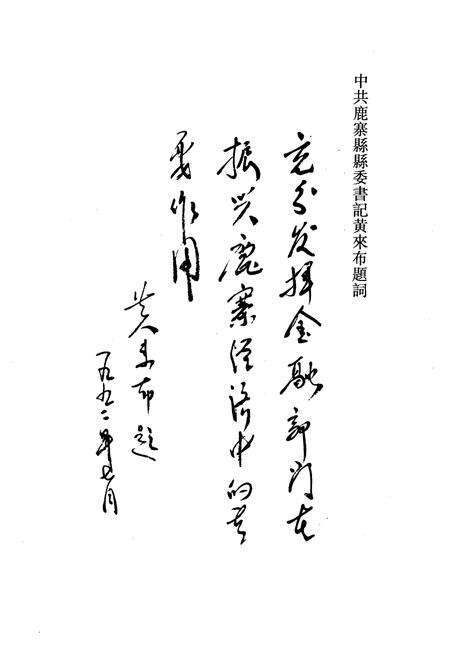 中共鹿寨縣縣委書記黃來布題詞
充分发挥金融部门在
振兴鹿寨经济中的重
要作用
黄来布题
一九九二年七月